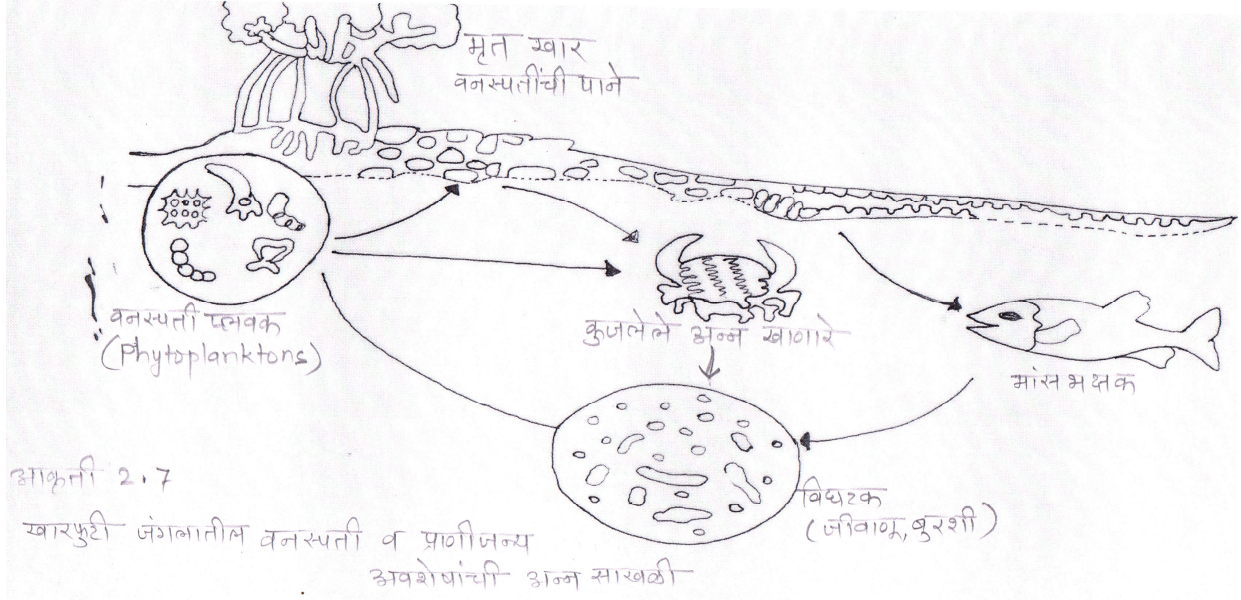 मृत खार
वनस्पतींची पाने
वनस्पती प्लवक
(Phytoplanktons)
कुजलेले अन्न खाणारे
मांसभक्षक
विघटक
(जीवाणू, बुरशी)
आकृती 2.7
खारफुटी जंगलातील वनस्पती व प्राणीजन्य
अवशेषांची अन्न साखळी